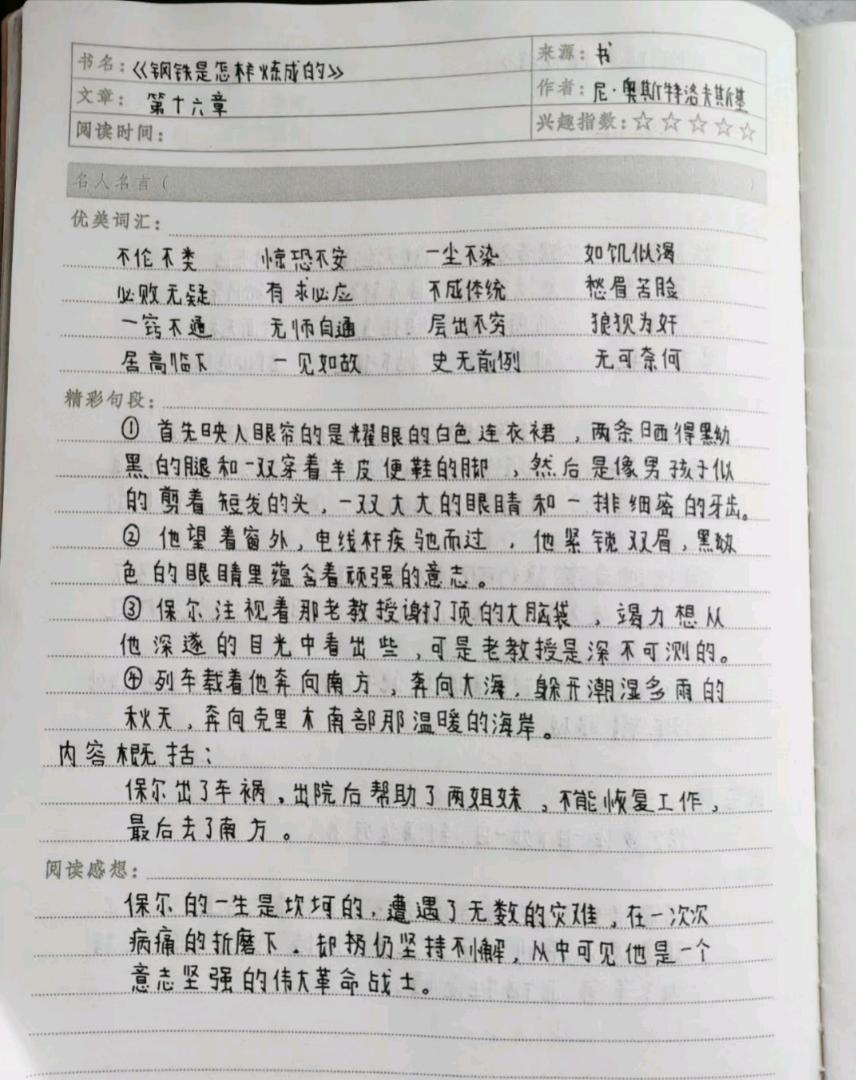 书名：《钢铁是怎样炼成的》 来源：书
文章：第十六章 作者：尼·奥斯特洛夫斯基
阅读时间： 兴趣指数：☆☆☆☆☆
名人名言（ ）
优美词汇：
不伦不类 惊恐不安 一尘不染 如饥似渴
必败无疑 有求必应 不成体统 愁眉苦脸
一窍不通 无师自通 层出不穷 狼狈为奸
居高临下 一见如故 史无前例 无可奈何
精彩句段：
① 首先映入眼帘的是耀眼的白色连衣裙，两条晒得黝
黑的腿和一双穿着羊皮便鞋的脚，然后是像男孩子似
的剪着短发的头，一双大大的眼睛和一排细密的牙齿。
② 他望着窗外，电线杆疾驰而过，他紧锁双眉，黑
色的眼睛里蕴含着顽强的意志。
③ 保尔注视着那老教授谢打顶的大脑袋，竭力想从
他深邃的目光中看出些，可是老教授是深不可测的。
④ 列车载着他奔向南方，奔向大海，躲开潮湿多雨的
秋天，奔向克里木南部那温暖的海岸。
内容概括：
保尔出了车祸，出院后帮助了两姐妹，不能恢复工作，
最后去了南方。
阅读感想：
保尔的一生是坎坷的，遭遇了无数的灾难，在一次次
病痛的折磨下。却仍坚持不懈，从中可见他是一个
意志坚强的伟大革命战士。